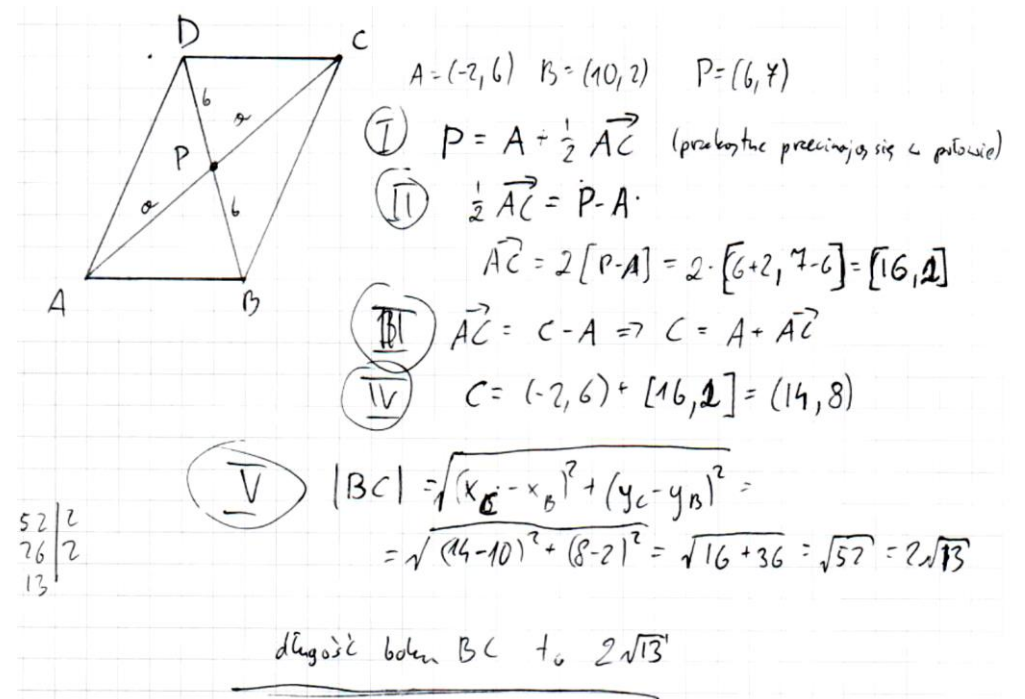 D
C
b
a
P
a
b
A
B
A = (-2, 6) B = (10, 2) P = (6, 7)
I P = A + 1/2 AC→ (przekątne przecinają się w połowie)
II 1/2 AC→ = P - A
AC→ = 2[P-A] = 2·[6+2, 7-6] = [16, 2]
III AC→ = C - A => C = A + AC→
IV C = (-2, 6) + [16, 2] = (14, 8)
V |BC| = √(x_C - x_B)² + (y_C - y_B)² =
= √(14-10)² + (8-2)² = √16+36 = √52 = 2√13
52 | 2
26 | 2
13
długość boku BC to 2√13